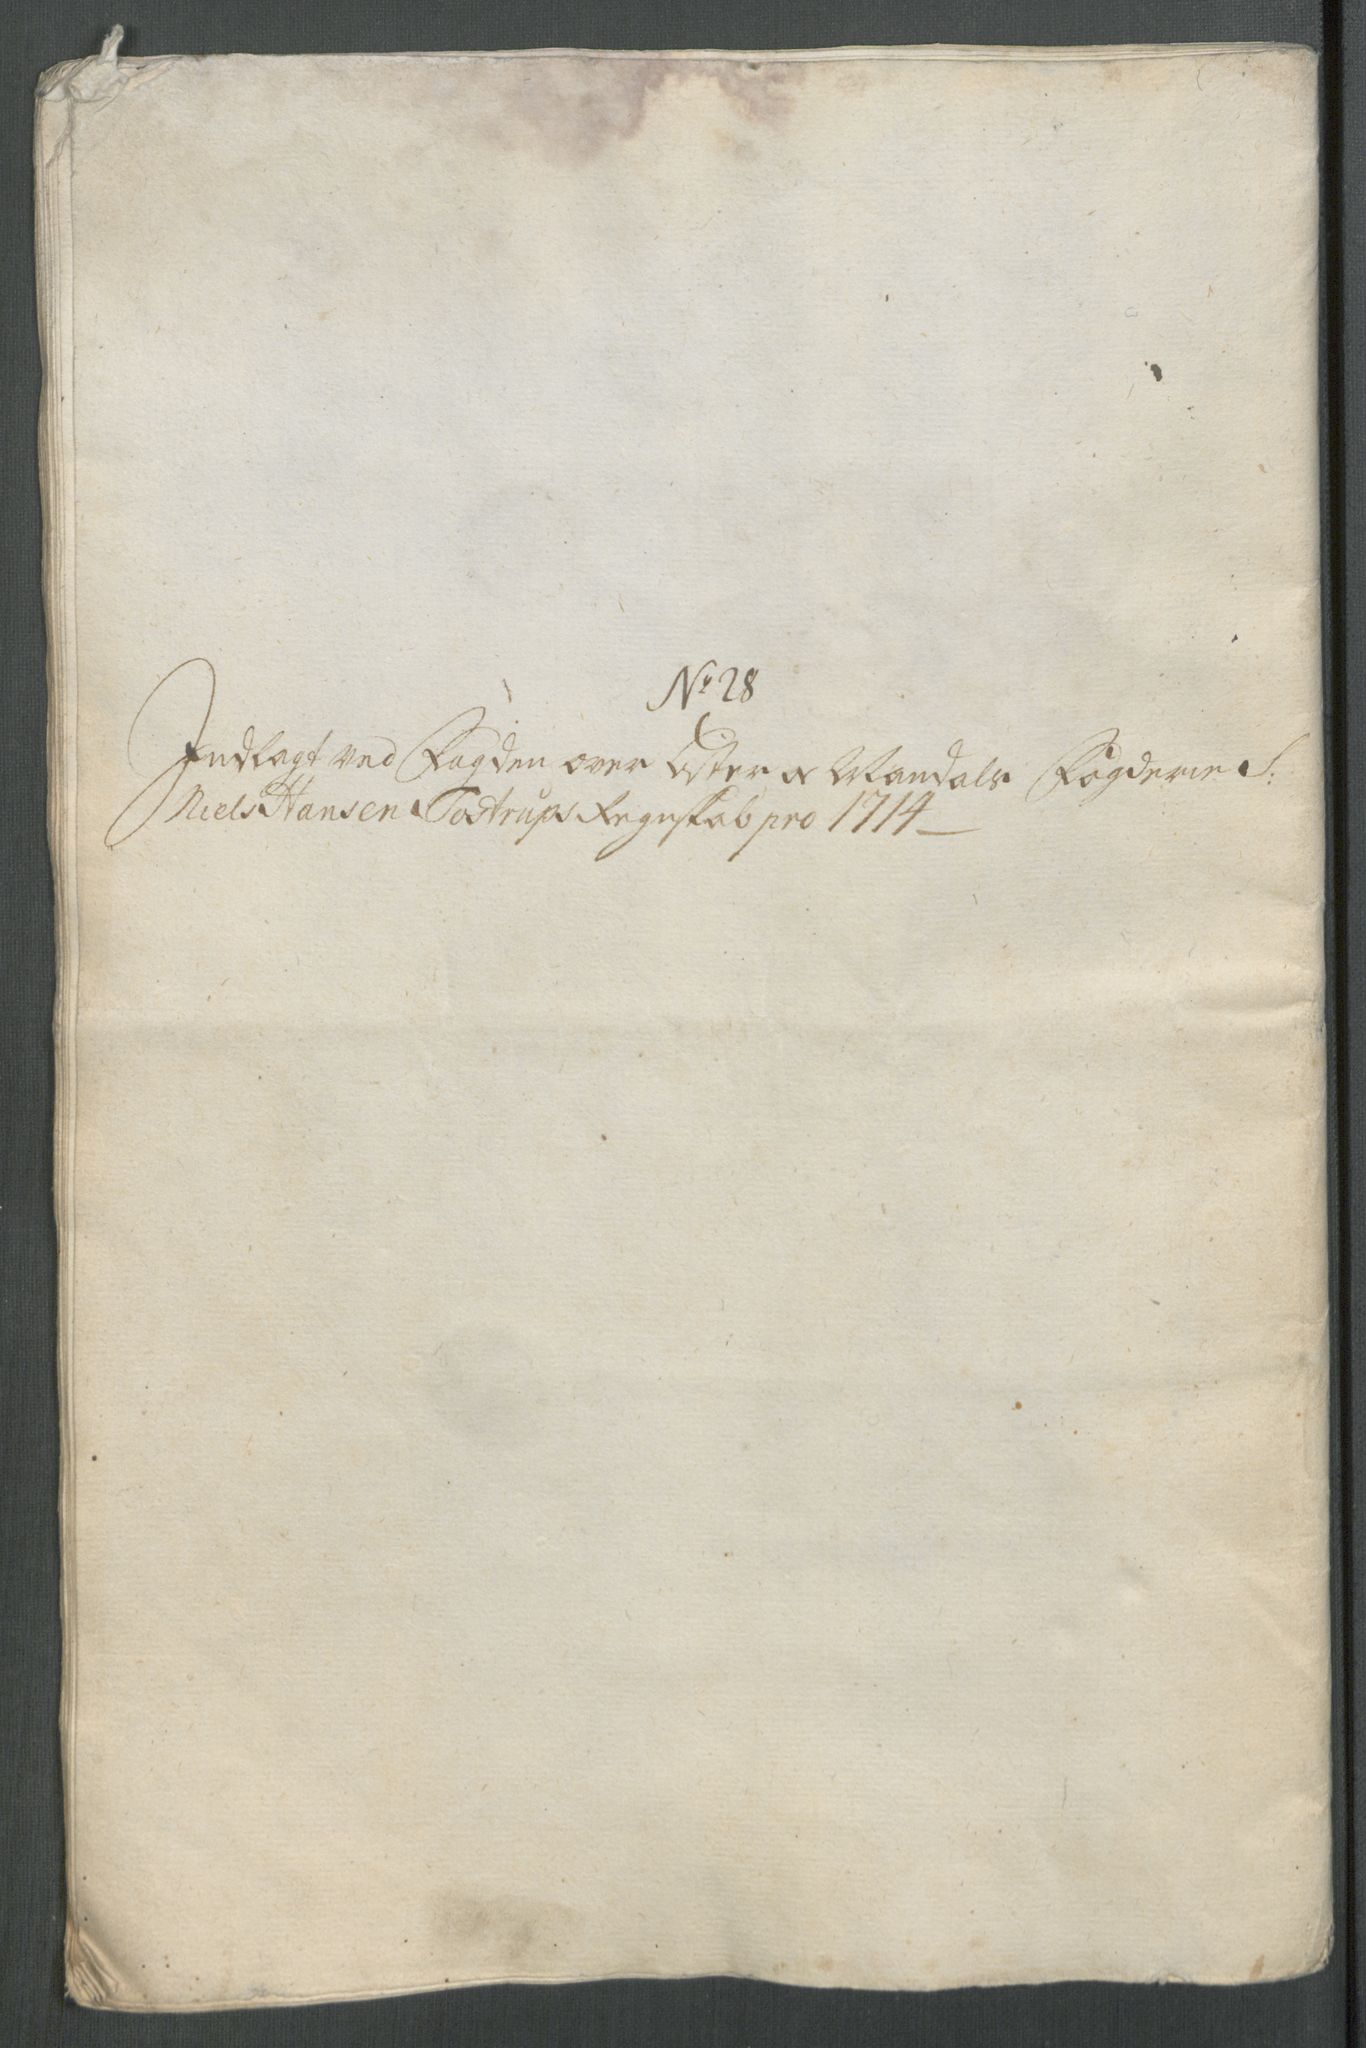 No 28
Indlagt ved Fogden over Øster og Mandals Fögderie S:
Niels Hansen Tostrups Regnskab pro 1714